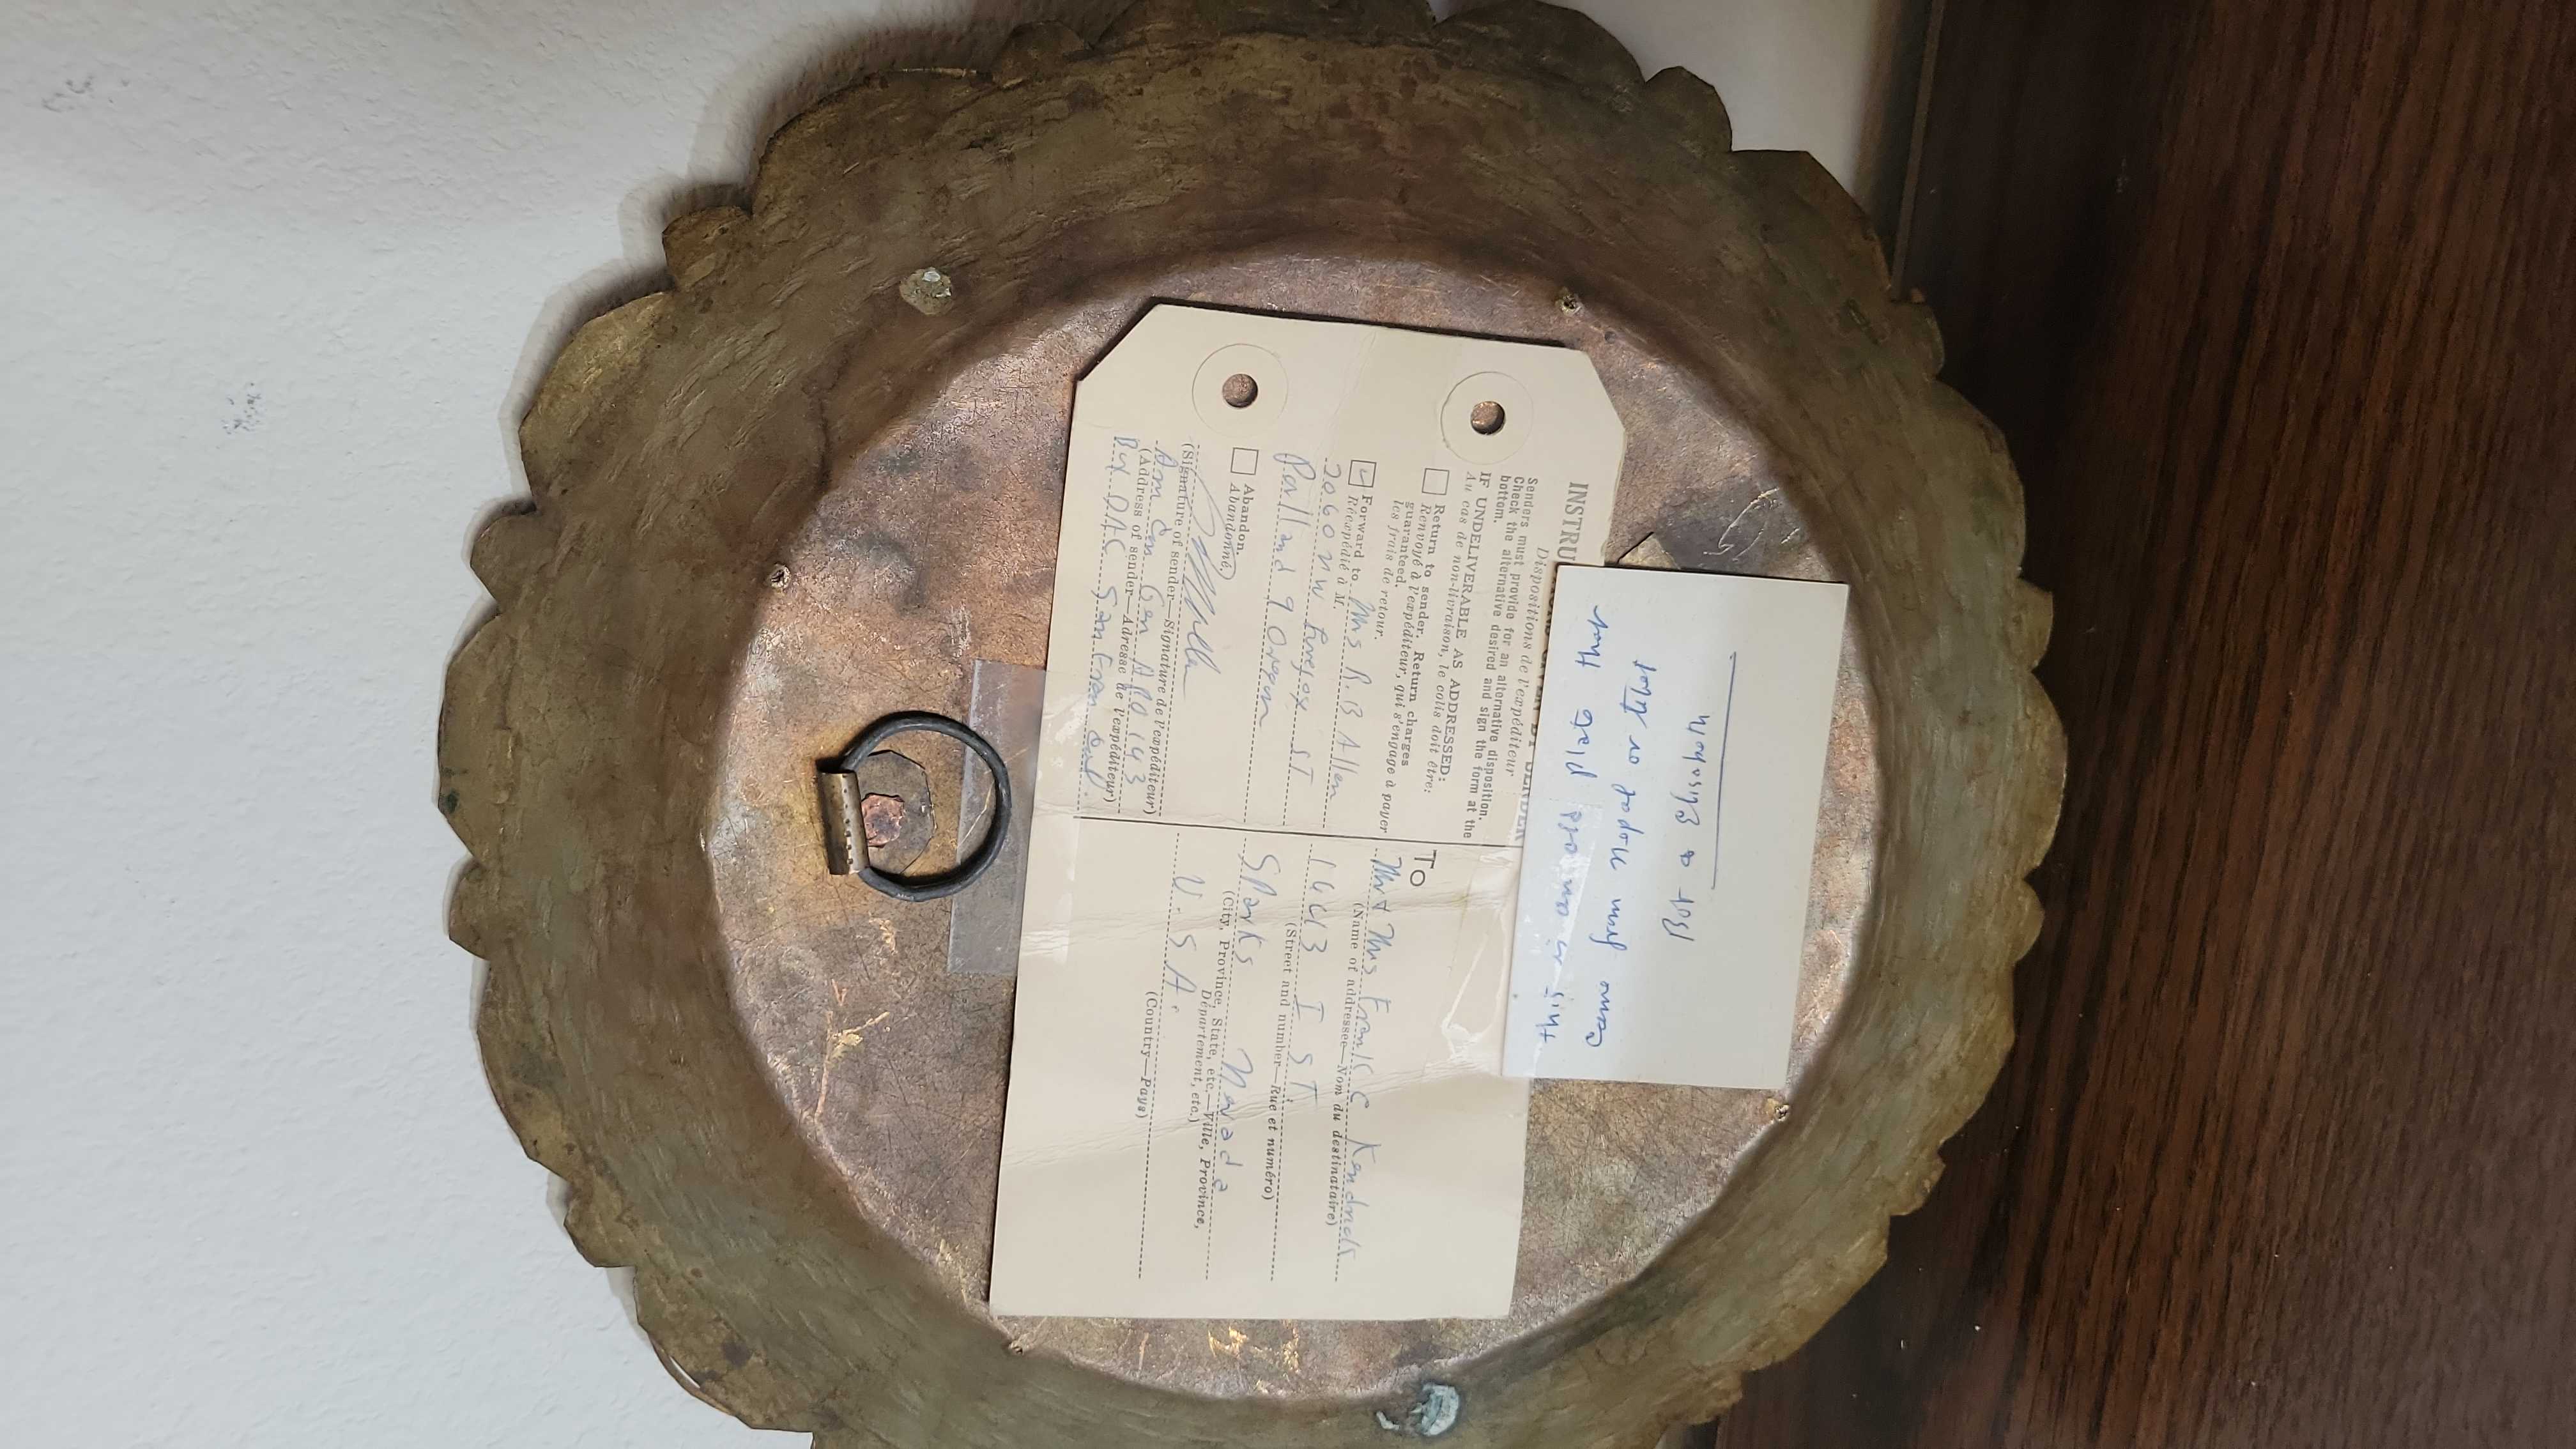 INSTRU
Dispositions de l'expéditeur
Senders must provide for an alternative disposition.
Check the alternative desired and sign the form at the
bottom.
IF UNDELIVERABLE AS ADDRESSED:
Au cas de non-livraison, le colis doit être:
Return to sender. Return charges
guaranteed.
Renvoyé à l'expéditeur, qui s'engage à payer
les frais de retour.
Forward to Mrs R.B Allen
Réexpédié à M.
2060 NW ST
Portland 9 Oregon
Abandon.
Abandonné.
(Signature of sender—Signature de l'expéditeur)
Am Con Gen APO 143
(Address of sender—Adresse de l'expéditeur)
San Fran Calif.
TO
Mr & Mrs Frank C Kendrick
(Name of addressee—Nom du destinataire)
1443 I ST
(Street and number—Rue et numéro)
Sparks Nevada
(City, Province, State, etc.—Ville, Province,
Département, etc.)
U.S.A.
(Country—Pays)
this is a gold plate that
came from may
or Tibet